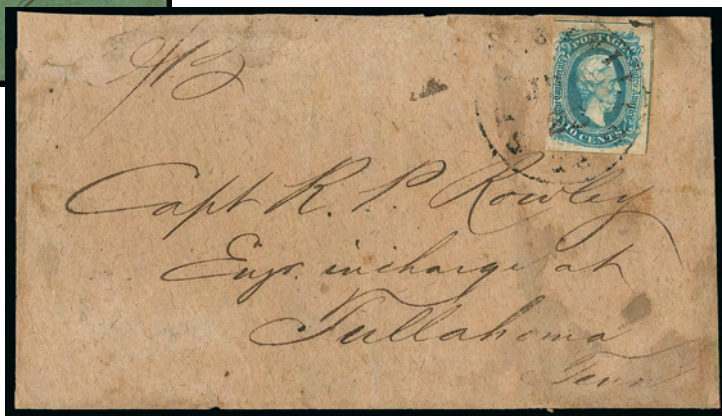 POSTAGE
TEN CENTS
Capt R. P. Rowley
Engr. in charge at
Tullahoma
Tenn